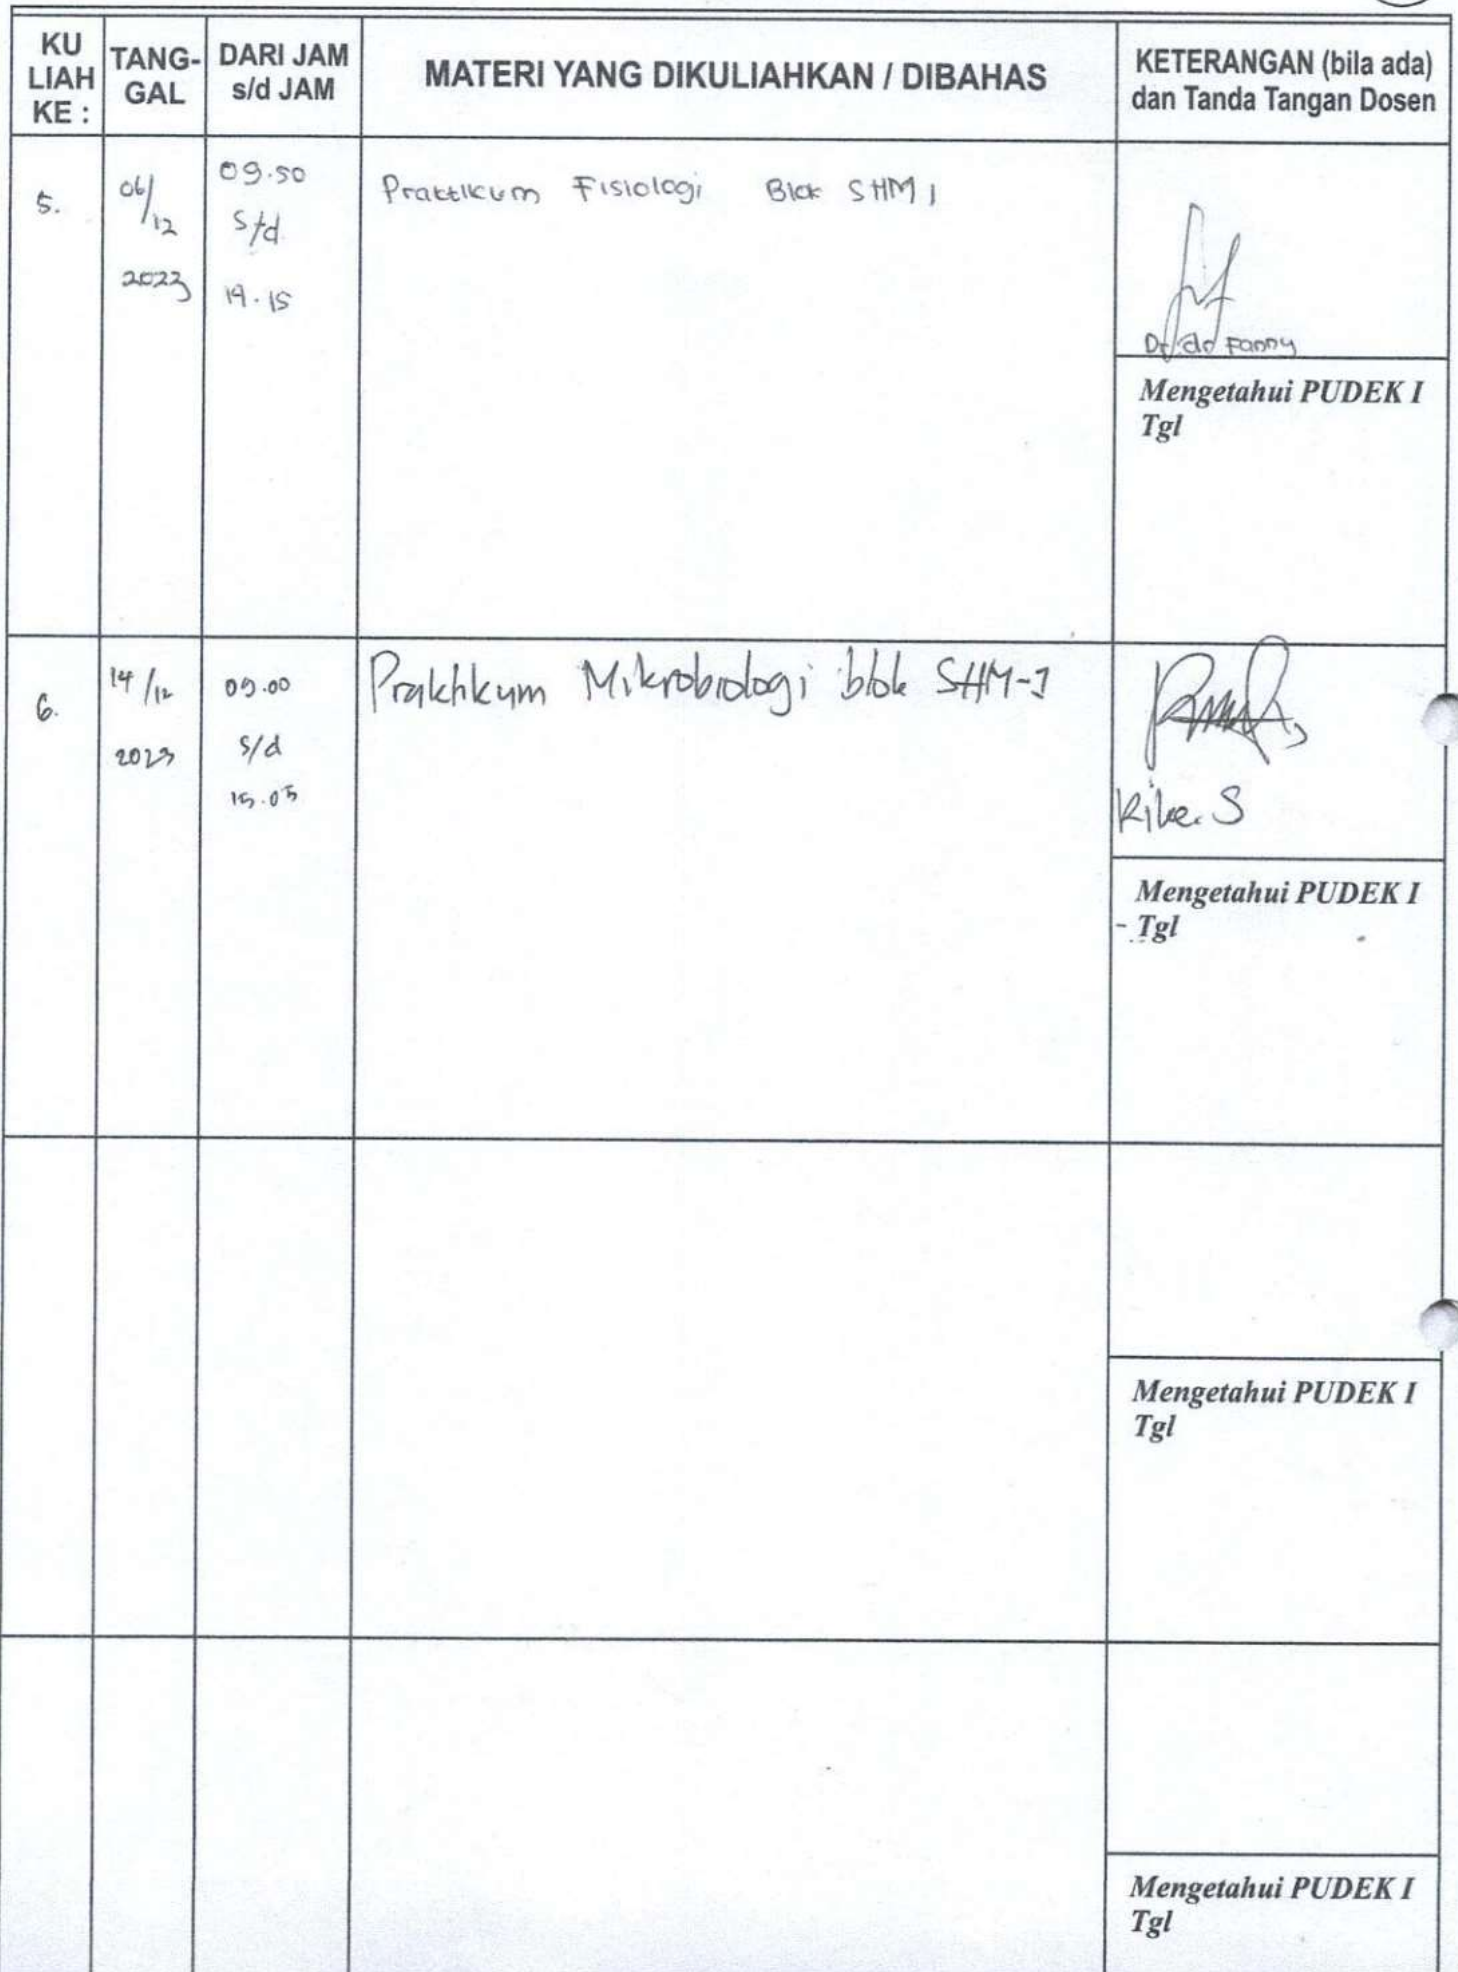 KU LIAH KE :
TANG-GAL
DARI JAM s/d JAM
MATERI YANG DIKULIAHKAN / DIBAHAS
KETERANGAN (bila ada) dan Tanda Tangan Dosen
5.
06/12
2023
09.50
s/d
14.15
Praktikum Fisiologi Blok SHM 1
Fanny
Mengetahui PUDEK I
Tgl
6.
14/12
2023
09.00
s/d
15.05
Praktikum Mikrobiologi blok SHM-I
Rike. S
Mengetahui PUDEK I
Tgl
Mengetahui PUDEK I
Tgl
Mengetahui PUDEK I
Tgl